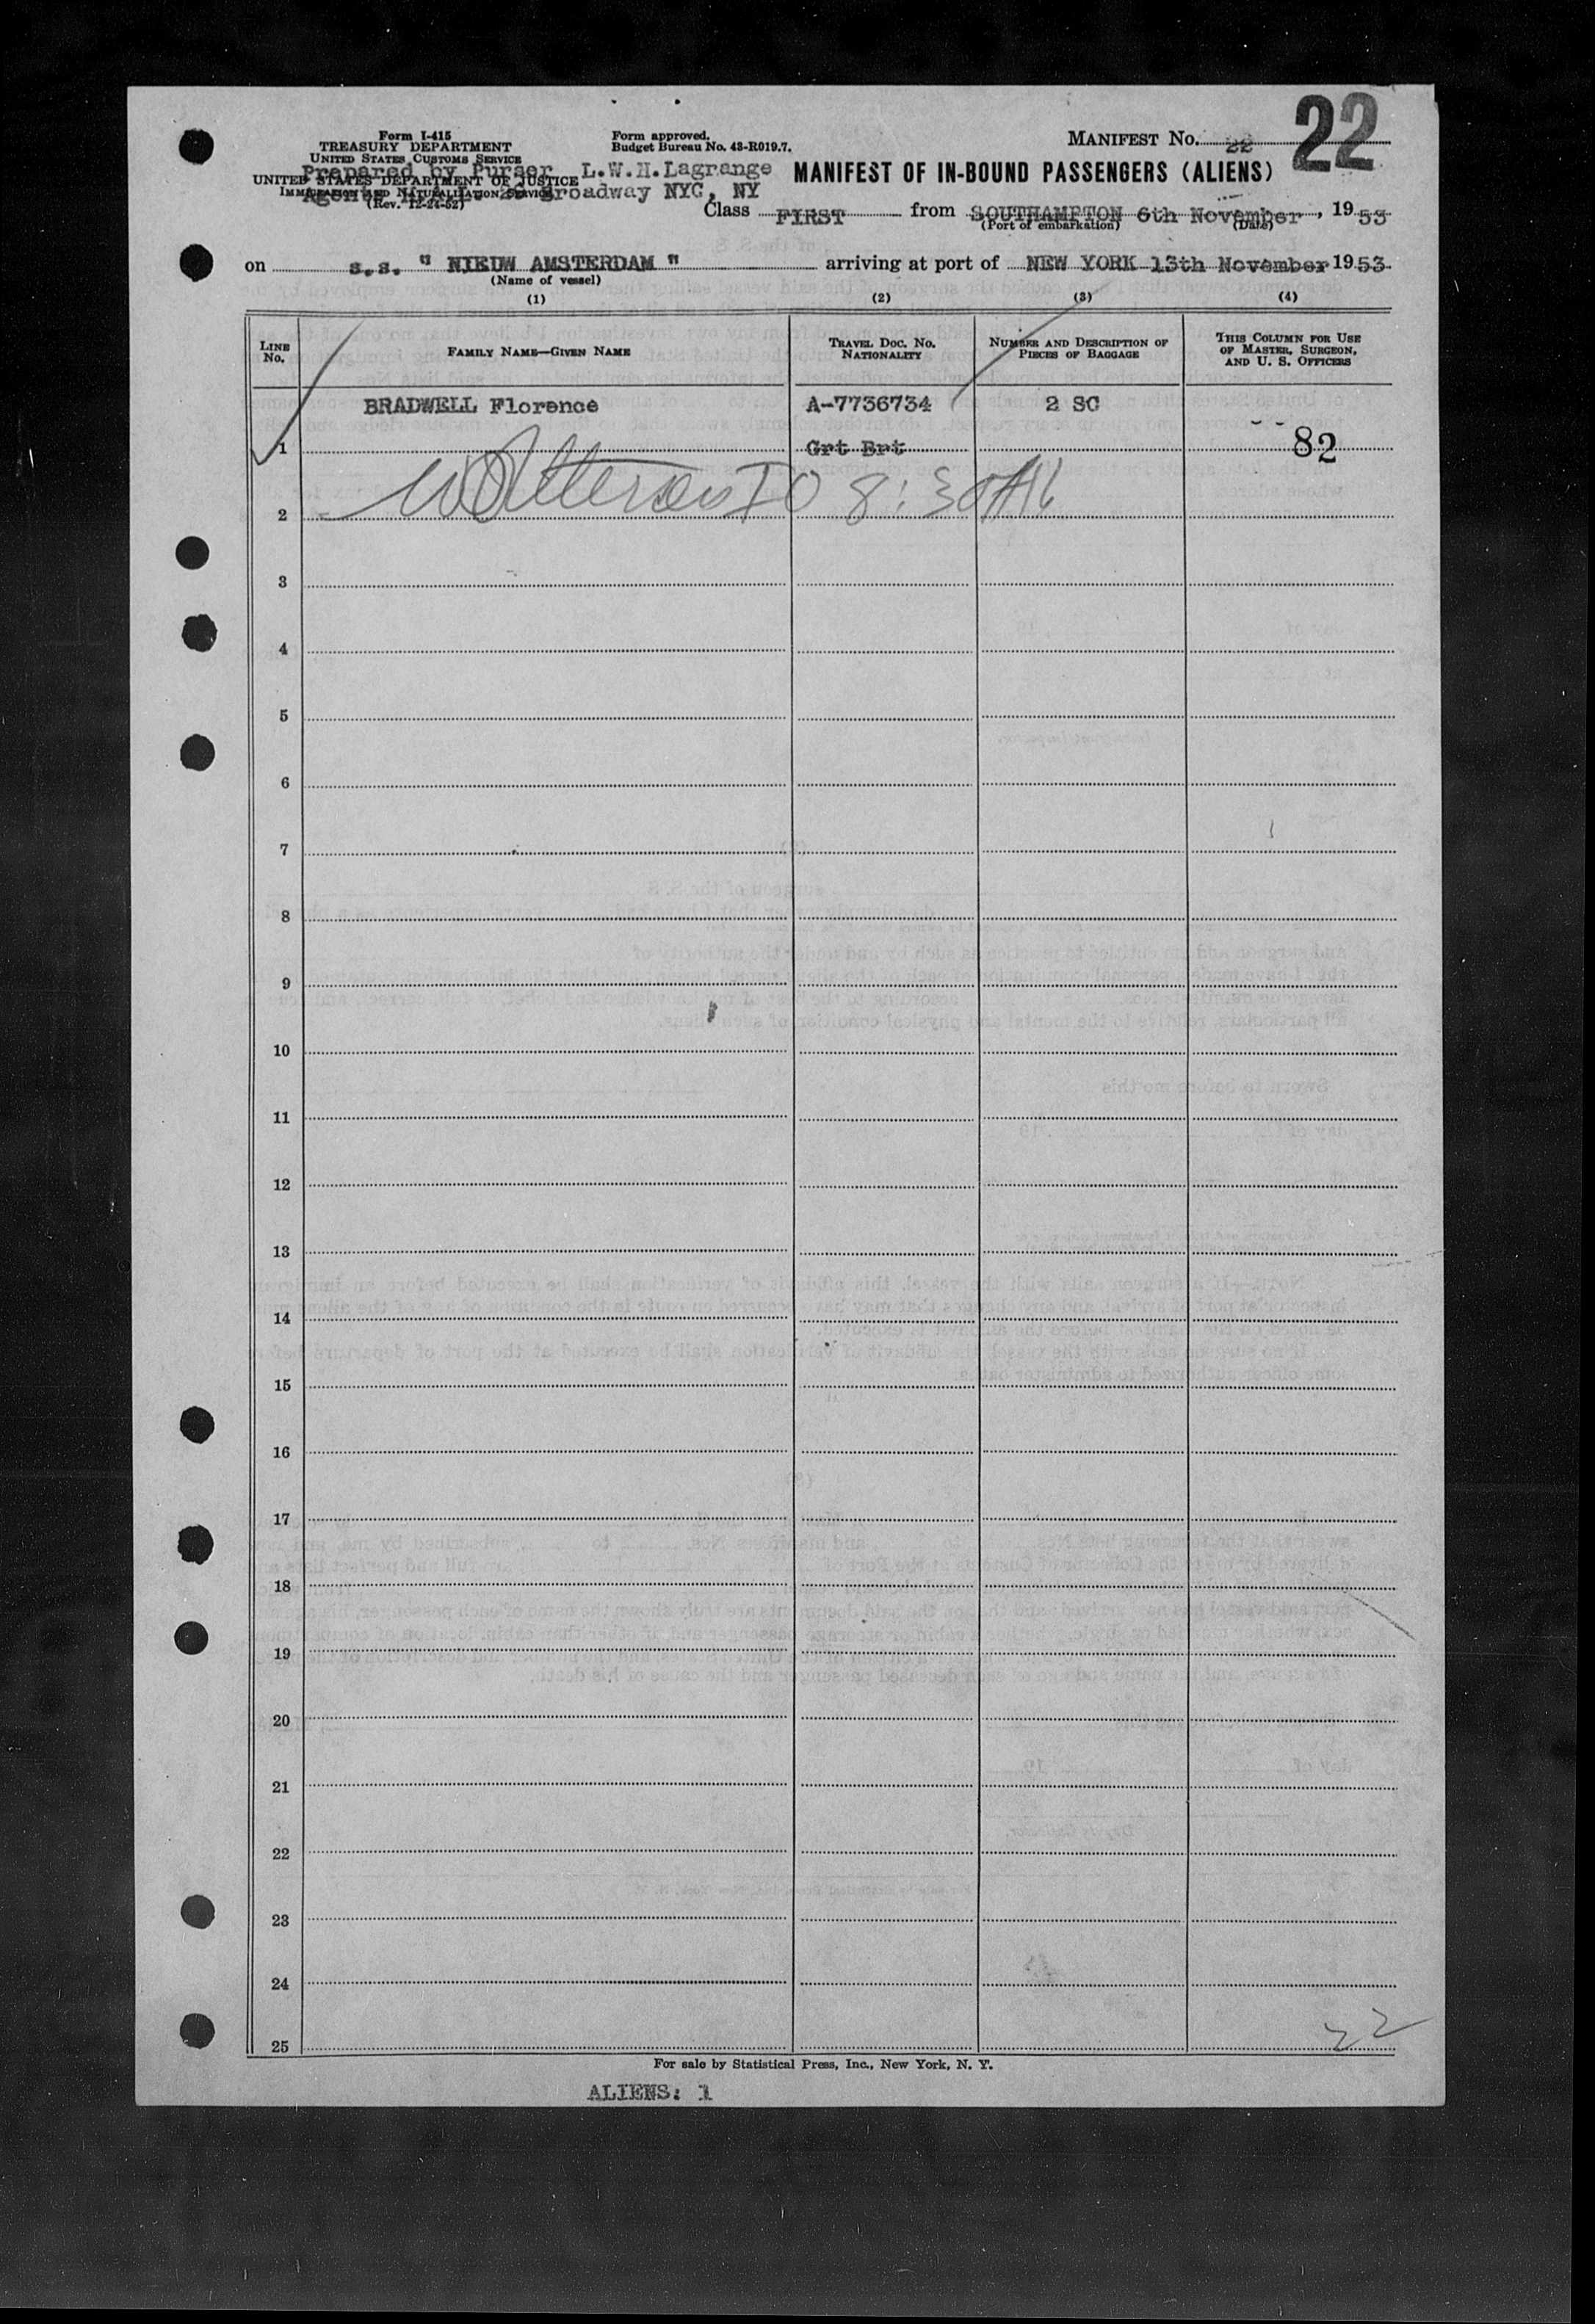 Form I-415
TREASURY DEPARTMENT
UNITED STATES CUSTOMS SERVICE
UNITED STATES DEPARTMENT OF JUSTICE
IMMIGRATION AND NATURALIZATION SERVICE
(Rev. 12-24-52)
Prepared by Purser L.W.H.Lagrange
Agents Broadway NYC, NY
Form approved.
Budget Bureau No. 43-R019.7.
MANIFEST No. 22
22
MANIFEST OF IN-BOUND PASSENGERS (ALIENS)
Class FIRST from SOUTHAMPTON 6th November, 1953
(Port of embarkation) (Date)
on s.s. " NIEUW AMSTERDAM " arriving at port of NEW YORK 13th November 1953
(Name of vessel)
(1) (2) (3) (4)
LINE No. FAMILY NAME—GIVEN NAME TRAVEL DOC. No. NATIONALITY NUMBER AND DESCRIPTION OF PIECES OF BAGGAGE THIS COLUMN FOR USE OF MASTER, SURGEON, AND U. S. OFFICERS
BRADWELL Florence A-7736734 2 SC
1 Grt Brt 82
2 IO 8:30
3
4
5
6
7
8
9
10
11
12
13
14
15
16
17
18
19
20
21
22
23
24
25
22
For sale by Statistical Press, Inc., New York, N. Y.
ALIENS: 1